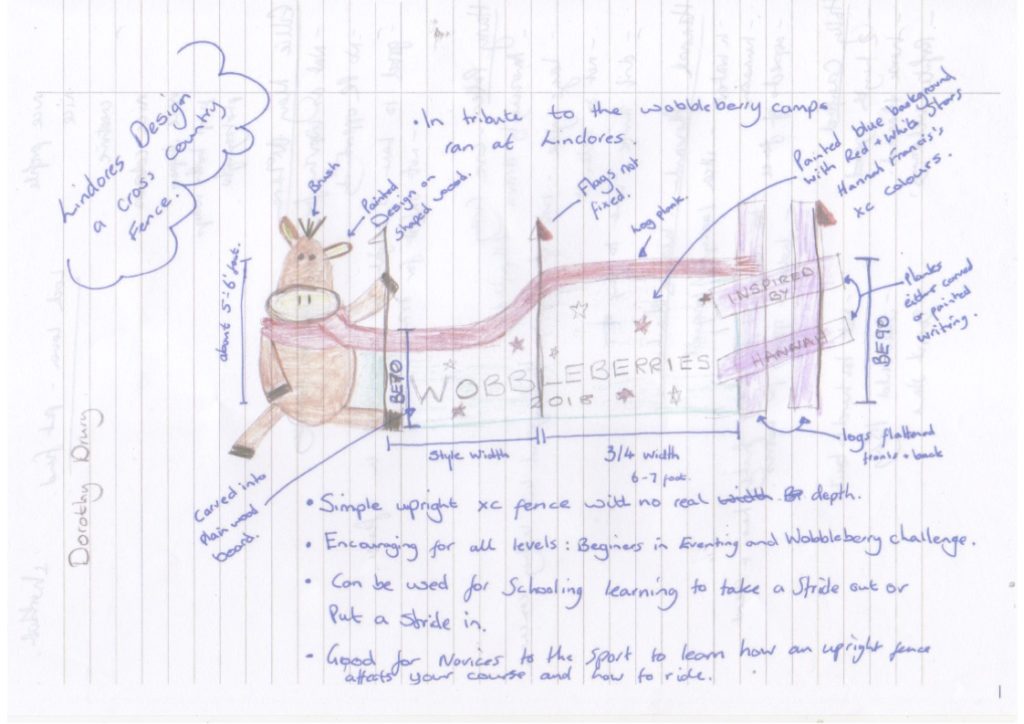 Lindores Design
a Cross Country
Fence.
• In tribute to the wobbleberry camps
ran at Lindores.
Brush
Painted
Design on
shaped wood.
Flags not
fixed.
Log plank.
Painted blue background
with Red + White Stars
Hannah Francis's
xc colours.
about 5'-6' foot.
BE70
WOBBLEBERRIES
2018
INSPIRED
BY
HANNAH
BE90
Planks
either carved
or painted
writing.
Style width
3/4 width
6-7 foot.
logs flattened
front + back
Carved into
Plain wood
board.
Dorothy Drury
• Simple upright xc fence with no real width depth.
• Encouraging for all levels: Beginers in Eventing and Wobbleberry challenge.
• Can be used for Schooling learning to take a Stride out or
Put a Stride in.
• Good for Novices to the Sport to learn how an upright fence
affats your course and how to ride.
1